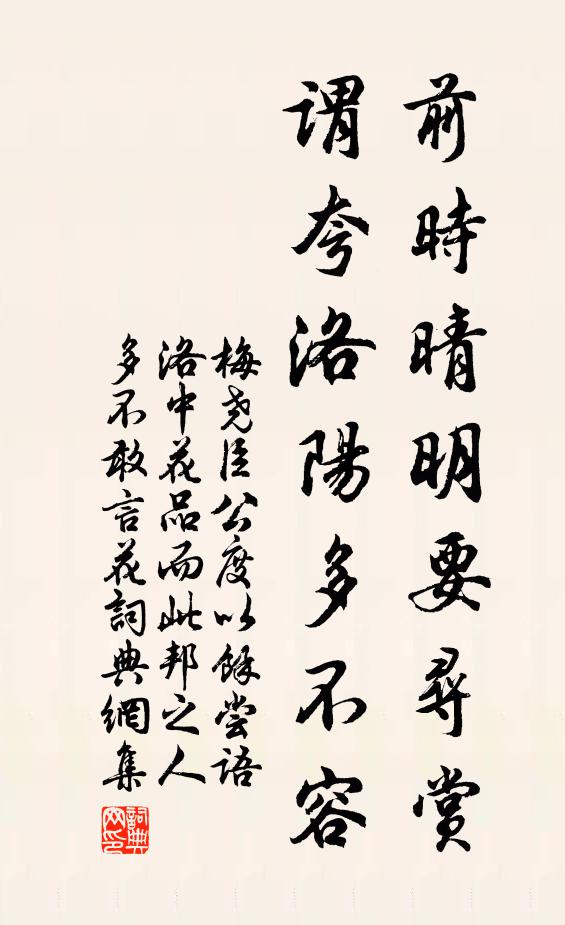 前時晴明要尋賞
謂夸洛陽多不容
梅堯臣公度以餘嘗語
洛中花品而此邦之人
多不敢言花詞典網集
詞典網印